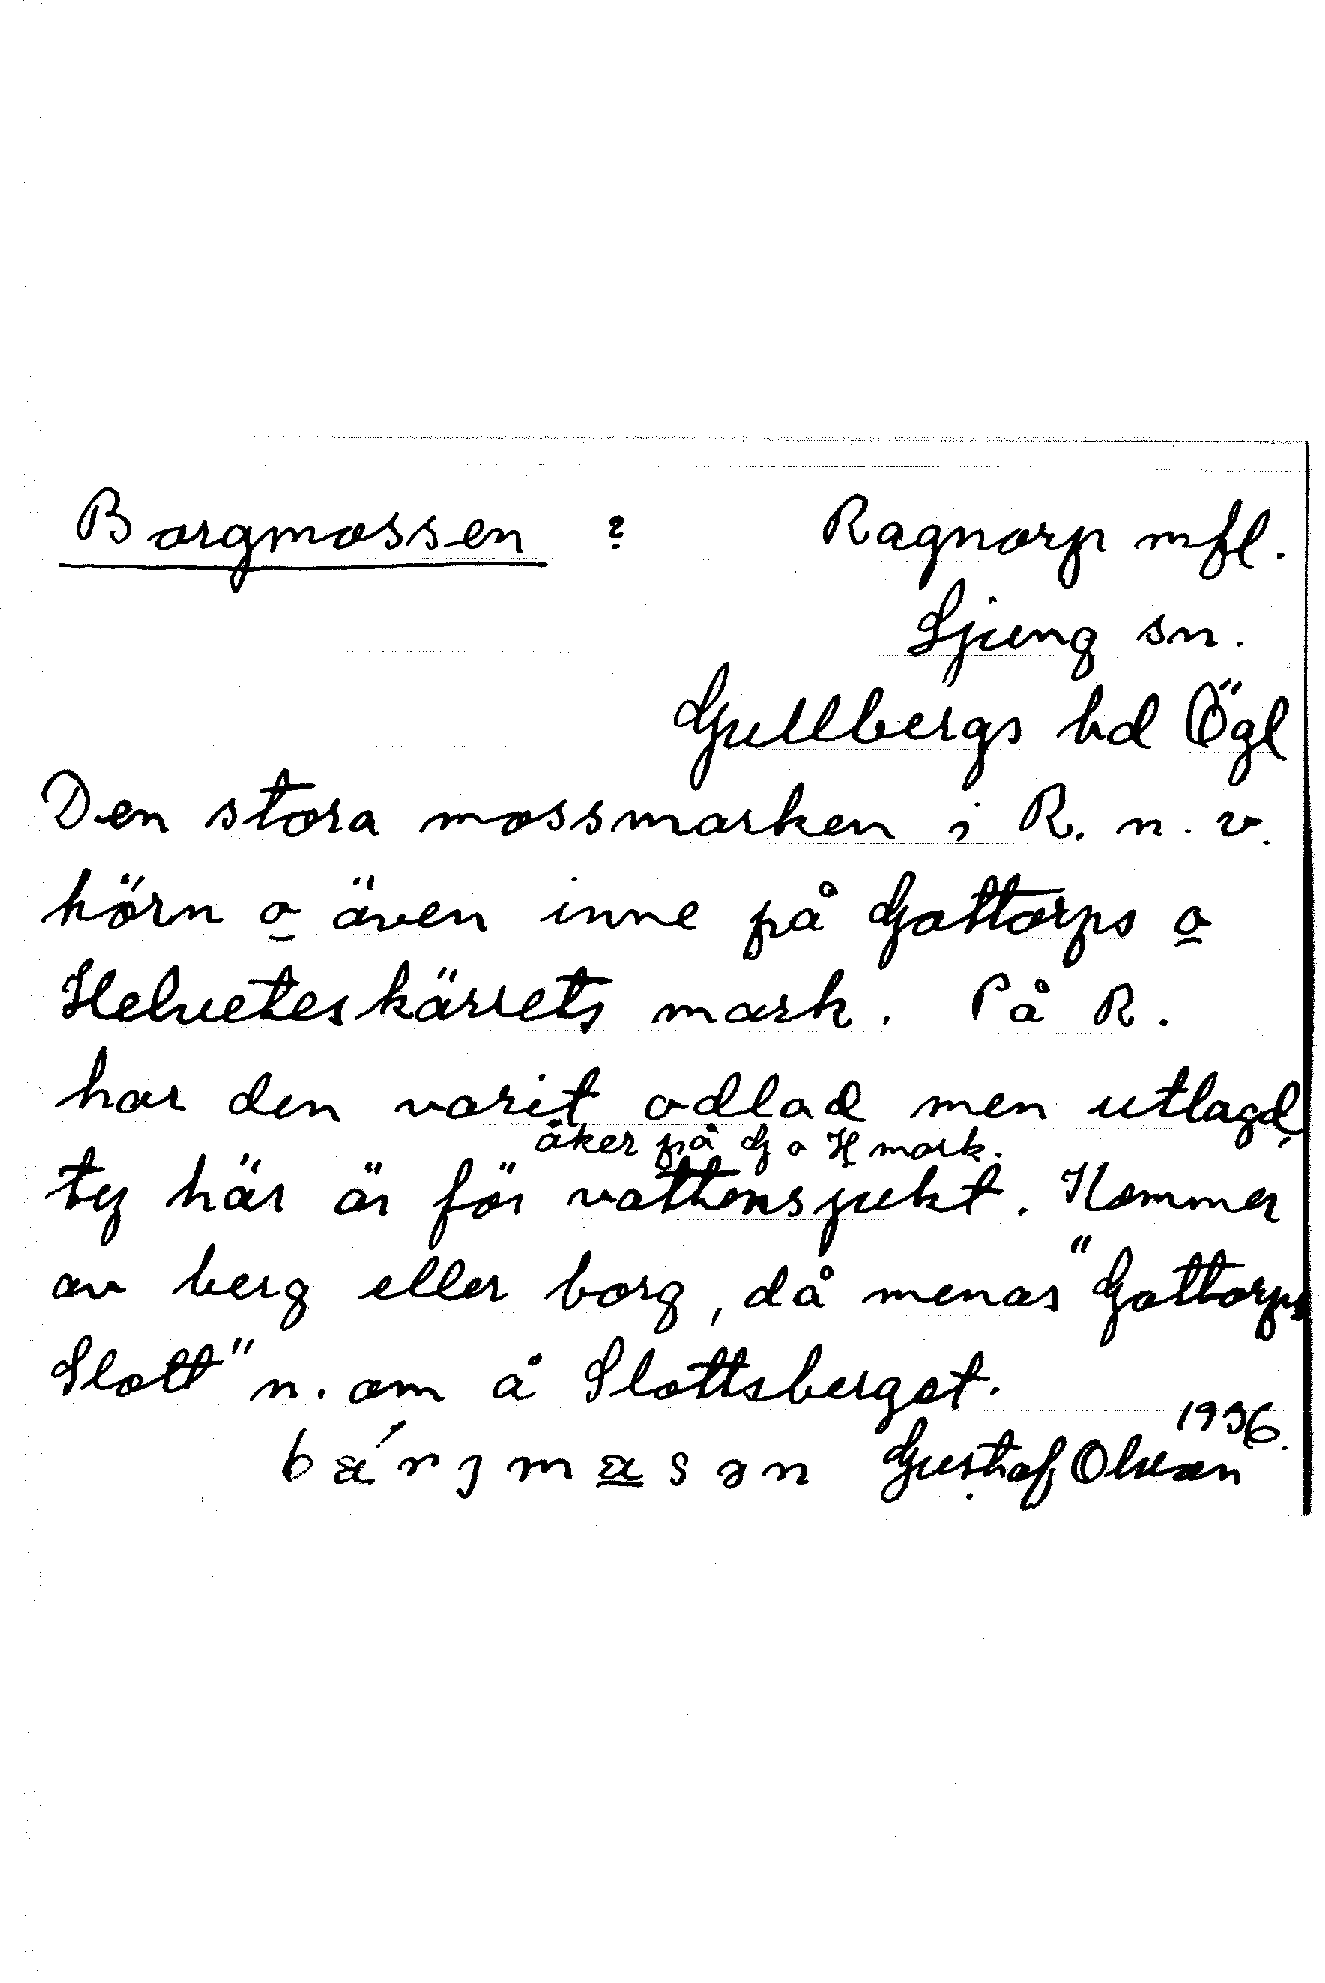 Borgmossen ? Ragnorp mfl.
Ljung sn.
Gullbergs hd Ögl
Den stora mossmarken i R. n. v.
hörn o även inne på Gottorps o
Helveteskärrets mark. På R.
har den varit odlad men utlagd,
åker på G o H mark.
ty här är för vattensjukt. Kommer
av berg eller borg, då menas "Gottorps
Slott" n. om å Slottsberget.
1936.
Gustaf Olsson